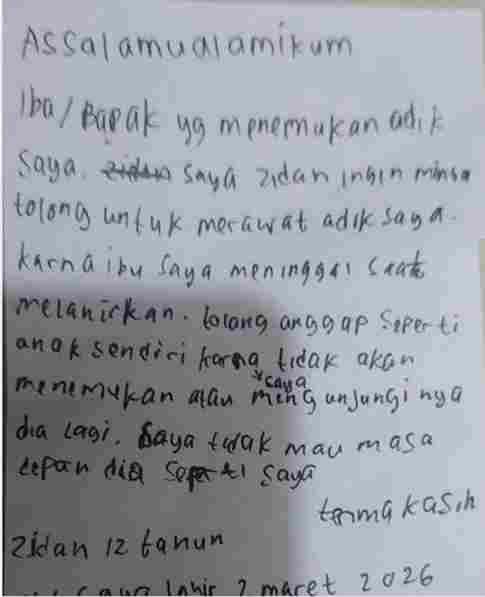 Assalamualamikum
Iba/Bapak yg menemukan adik
saya. zidan saya zidan ingin minta
tolong untuk merawat adik saya.
karna ibu saya meninggal saat
melanirkan. tolong anggap seperti
anak sendiri karna tidak akan
menemukan atau saya mengunjungi nya
dia lagi. saya tidak mau masa
depan dia seperti saya
terima kasih
zidan 12 tanun
saya lahir 2 maret 2026